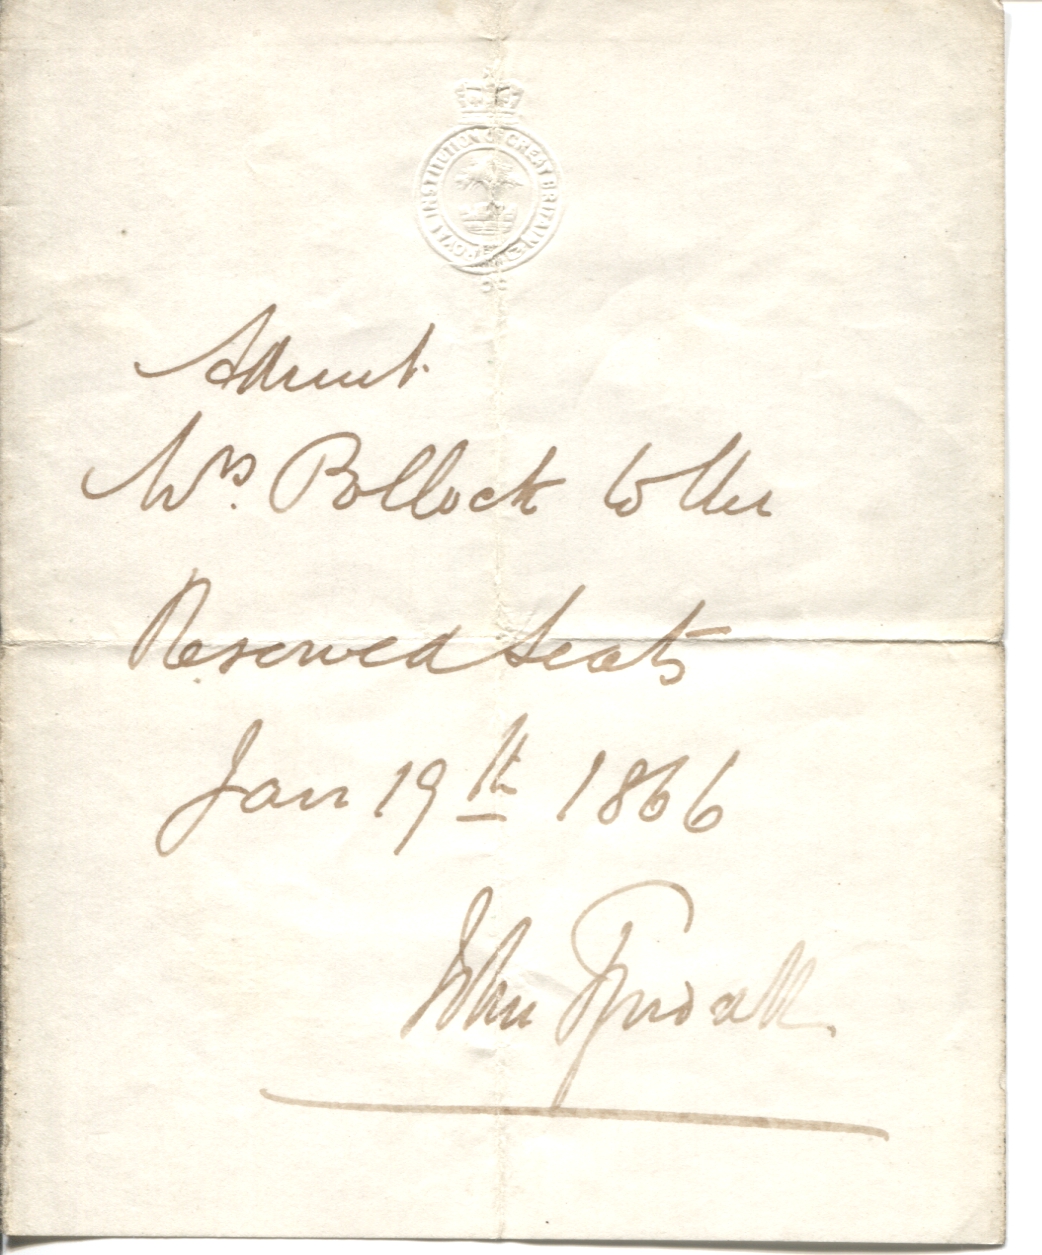 ROYAL INSTITUTION OF GREAT BRITAIN
Admit
Mrs. Pollock to the
Reserved Seats
Jan 19th 1866
John Tyndall.